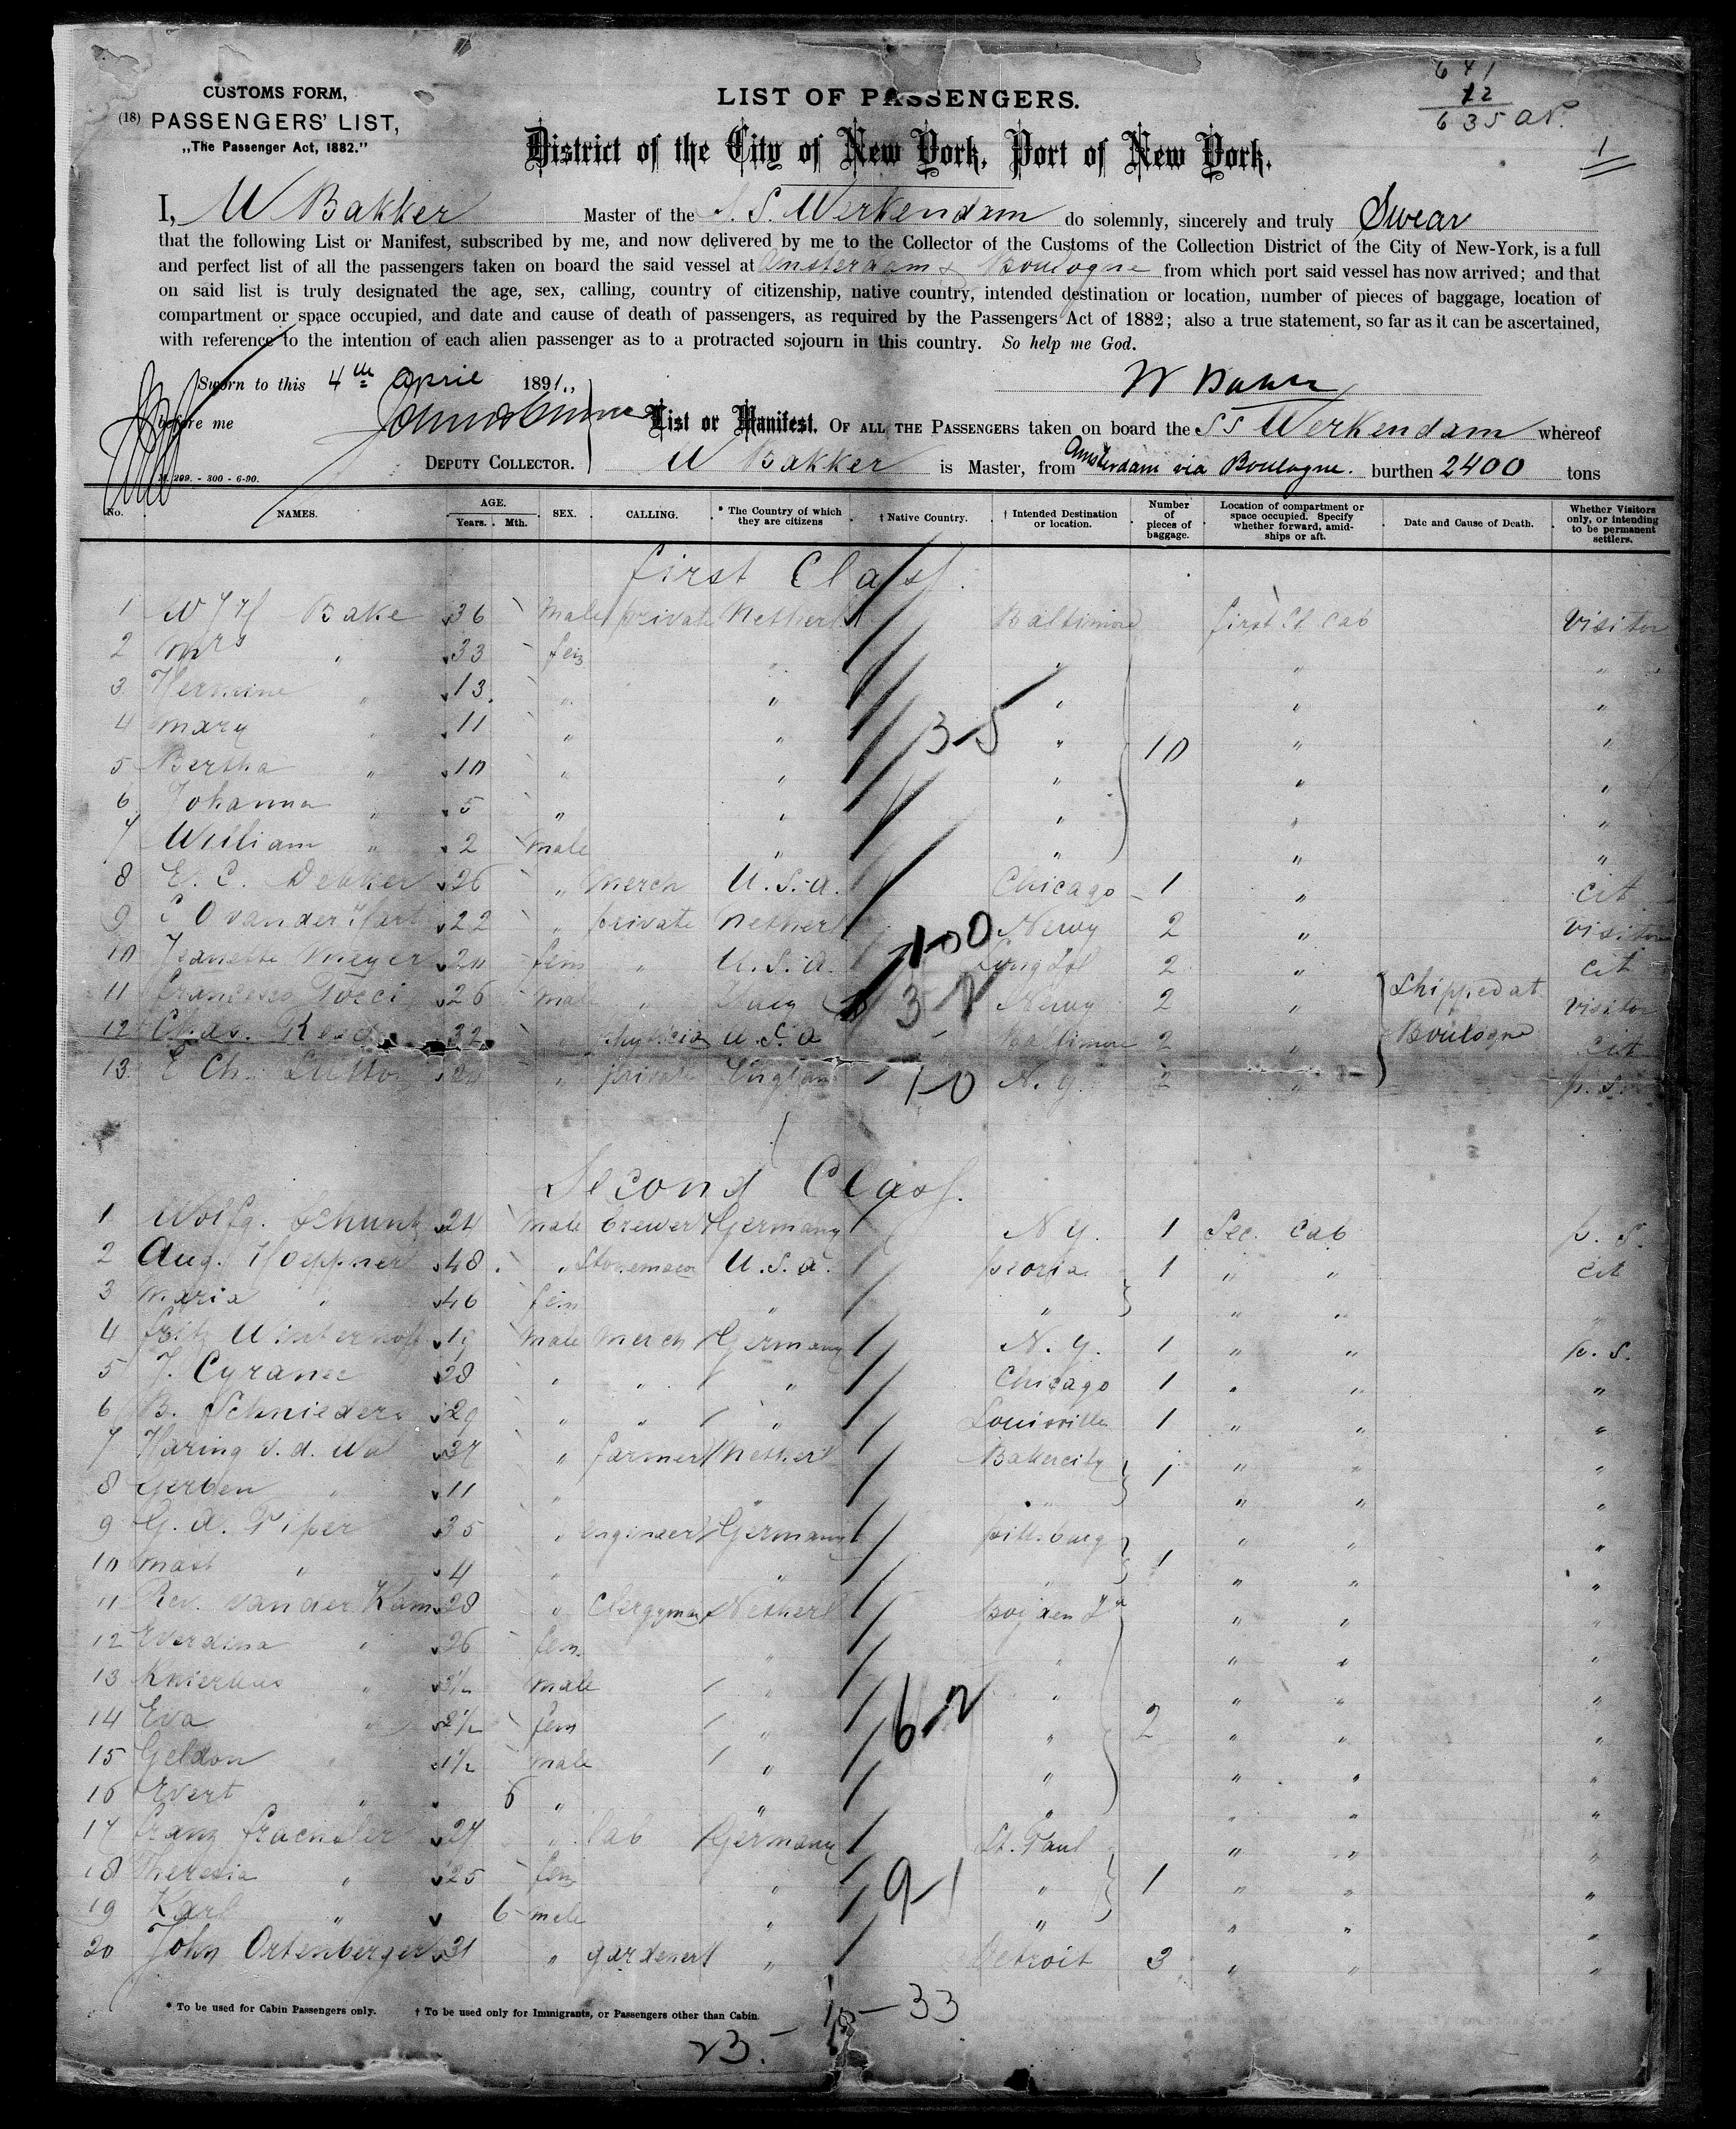 CUSTOMS FORM,
(18) PASSENGERS' LIST,
„The Passenger Act, 1882."
LIST OF PASSENGERS.
641
12
635
1
District of the City of New York, Port of New York.
I, W Bakker Master of the S. S. Werkendam do solemnly, sincerely and truly Swear
that the following List or Manifest, subscribed by me, and now delivered by me to the Collector of the Customs of the Collection District of the City of New-York, is a full
and perfect list of all the passengers taken on board the said vessel at Amsterdam & Boulogne from which port said vessel has now arrived; and that
on said list is truly designated the age, sex, calling, country of citizenship, native country, intended destination or location, number of pieces of baggage, location of
compartment or space occupied, and date and cause of death of passengers, as required by the Passengers Act of 1882; also a true statement, so far as it can be ascertained,
with reference to the intention of each alien passenger as to a protracted sojourn in this country. So help me God.
Sworn to this 4th April 1891,,
W Bakker
before me
List or Manifest. OF ALL THE PASSENGERS taken on board the SS Werkendam whereof
DEPUTY COLLECTOR. W Bakker is Master, from Amsterdam via Boulogne. burthen 2400 tons
M. 209. - 300 - 6-90.
No. NAMES. AGE. Years. Mth. SEX. CALLING. * The Country of which they are citizens † Native Country. † Intended Destination or location. Number of pieces of baggage. Location of compartment or space occupied. Specify whether forward, amidships or aft. Date and Cause of Death. Whether Visitors only, or intending to be permanent settlers.
First Class.
1 Bake 36 Male private Netherl Baltimore first Cl. Cab Visitor
2 Mrs " 33 fem " " " "
3 Hermine " 13 " " " " "
4 Mary " 11 " " " 10 " "
5 Bertha " 10 " " " " "
6 Johanna " 5 " " " " "
7 William " 2 male " " " "
8 E. C. 26 " Merch U.S.A. Chicago 1 " cit
9 C O van der Hart 22 " private Netherl 2 " visitor
10 Jeanette Meyer fem " U.S.A. 2 " cit
11 Francesco Tocci 26 male " 2 " Shipped at visitor
12 Chas. Read 32 " U.S.A Baltimore 2 " Boulogne cit
13 E Ch. 24 " private England N.Y. 2 " p. s.
35
100
10
Second Class.
1 Wolfg. 24 Male brewer Germany N Y. 1 Sec. Cab p. s.
2 Aug. Hoeppner 48 " U.S.A. Peoria 1 " " cit
3 Maria " 46 fem " " " " "
4 Fritz 19 Male Merch Germany N. Y. 1 " " p. s.
5 J. 28 " " " Chicago 1 " " "
6 B. Schnieders 29 " " " Louisville 1 " " "
7 Haring v. d. Wal 37 " farmer Netherl Bakercity 1 " " "
8 Gerben " 11 " " " " " "
9 G. A. Piper 35 " engineer Germany " " "
10 " 4 " " " 1 " " "
11 Rev. van der Kam 28 " Clergyman Netherl " " "
12 Everdina " 26 fem. " " " " "
13 " 3½ male " " " " "
14 Eva " 2½ fem " " 2 " " "
15 " 1½ male " " " " "
16 Evert " 6 " " " " " "
17 Franz 27 " lab Germany St. Paul " " "
18 Theresia " 25 fem " " 1 " " "
19 Karl " 6 male " " " " "
20 John Ortenberger 31 " gardener " Detroit 3 " " "
62
91
* To be used for Cabin Passengers only. † To be used only for Immigrants, or Passengers other than Cabin.
33
23.